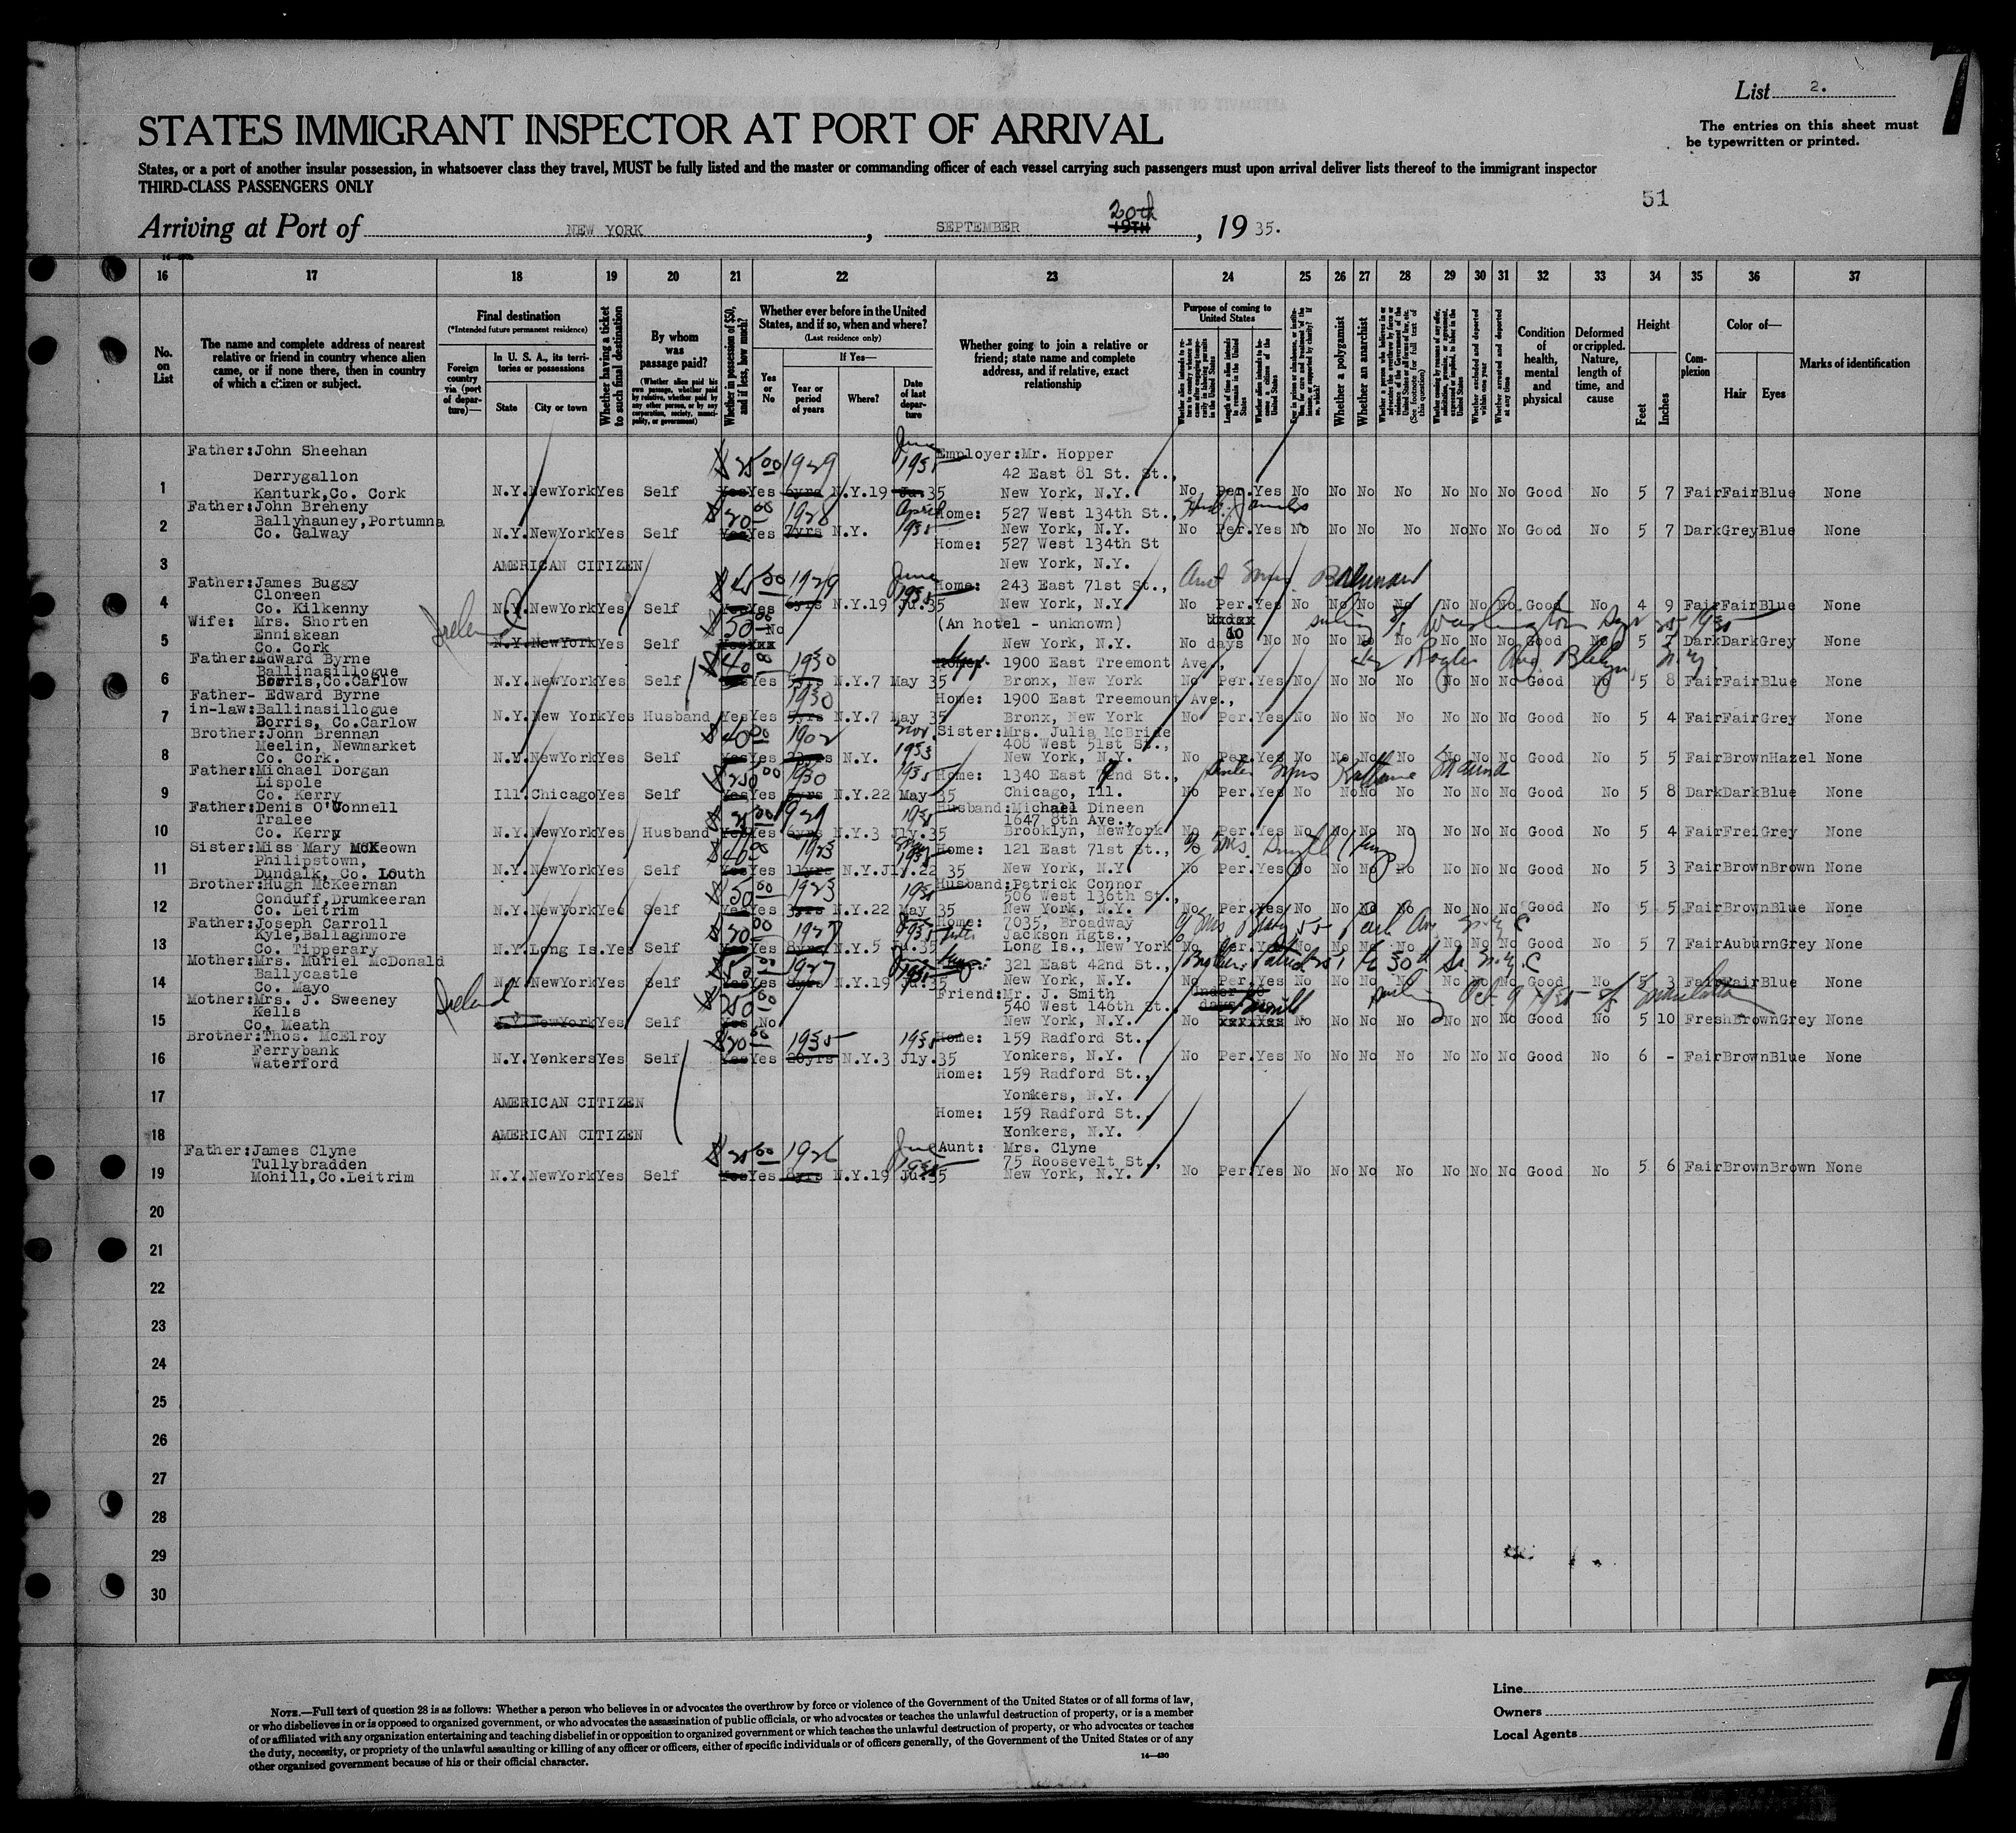 List 2.
7
The entries on this sheet must
be typewritten or printed.
STATES IMMIGRANT INSPECTOR AT PORT OF ARRIVAL
States, or a port of another insular possession, in whatsoever class they travel, MUST be fully listed and the master or commanding officer of each vessel carrying such passengers must upon arrival deliver lists thereof to the immigrant inspector
THIRD-CLASS PASSENGERS ONLY
51
Arriving at Port of NEW YORK, SEPTEMBER 19TH 20th, 1935.
16 17 18 19 20 21 22 23 24 25 26 27 28 29 30 31 32 33 34 35 36 37
No. on List
The name and complete address of nearest relative or friend in country whence alien came, or if none there, then in country of which a citizen or subject.
Final destination
(*Intended future permanent residence)
Foreign country via (port of departure)—
In U. S. A., its territories or possessions
State
City or town
Whether having a ticket to such final destination
By whom was passage paid?
(Whether alien paid his own passage, whether paid by relative, whether paid by any other person, or by any corporation, society, municipality, or government)
Whether in possession of $50, and if less, how much?
Whether ever before in the United States, and if so, when and where?
(Last residence only)
If Yes—
Yes or No
Year or period of years
Where?
Date of last departure
Whether going to join a relative or friend; state name and complete address, and if relative, exact relationship
Purpose of coming to United States
Length of time alien intends to remain in the United States
Whether alien intends to become a citizen of the United States
Whether a polygamist
Whether an anarchist
(See footnote for full text of this question)
Whether excluded and deported within one year
Whether arrested and deported at any time
Condition of health, mental and physical
Deformed or crippled. Nature, length of time, and cause
Height
Feet
Inches
Complexion
Color of—
Hair
Eyes
Marks of identification
Father:John Sheehan June Employer:Mr. Hopper
Derrygallon $25 00 1929 1935 42 East 81 St. St.,
1 Kanturk,Co. Cork N.Y. NewYork Yes Self Yes Yes 6yrs N.Y. 19 Ju.35 New York, N.Y. No Per. Yes No No No No No No No Good No 5 7 Fair Fair Blue None
Father:John Breheny $20 00 1928 April Home: 527 West 134th St.,
Ballyhauney,Portumna
2 Co. Galway N.Y. NewYork Yes Self Yes Yes 7yrs N.Y. 1935 New York, N.Y. No Per. Yes No No No No No No No Good No 5 7 Dark Grey Blue None
Home: 527 West 134th St
3 AMERICAN CITIZEN New York, N.Y.
Father:James Buggy $45 00 1929 June 1935 Home: 243 East 71st St., Aunt Mrs.
Cloneen
4 Co. Kilkenny N.Y. NewYork Yes Self Yes Yes 6yrs N.Y. 19 Ju.35 New York, N.Y. No Per. Yes No No No No No No No Good No 4 9 Fair Fair Blue None
Wife: Mrs. Shorten Ireland $50 00 No (An hotel - unknown) Under s/s Washington 1935
Enniskean
5 Co. Cork N.Y. NewYork Yes Self Yes New York, N.Y. No 10 days No No No No No No No No Good No 5 7 Dark Dark Grey None
Father:Edward Byrne $40 00 1930 Home: 1900 East Treemont Ave.,
Ballinasillogue
6 Borris,Co.Carlow N.Y. NewYork Yes Self Yes Yes 5yrs N.Y. 7 May 35 Bronx, New York No Per. Yes No No No No No No No Good No 5 8 Fair Fair Blue None
Father- Edward Byrne 1930 Home: 1900 East Treemount Ave.,
in-law:Ballinasillogue
7 Borris, Co.Carlow N.Y. New York Yes Husband Yes Yes 5yrs N.Y. 7 May 35 Bronx, New York No Per. Yes No No No No No No No Good No 5 4 Fair Fair Grey None
Brother:John Brennan $40 00 1902 Nov. 1933 Sister:Mrs. Julia McBride
Meelin, Newmarket 408 West 51st St.,
8 Co. Cork. N.Y. NewYork Yes Self Yes Yes N.Y. New York, N.Y. No Per. Yes No No No No No No No Good No 5 5 Fair Brown Hazel None
Father:Michael Dorgan $250 00 1930 1935 Home: 1340 East 72nd St., Sister Mrs
Lispole
9 Co. Kerry Ill. Chicago Yes Self Yes Yes 5yrs N.Y. 22 May 35 Chicago, Ill. No Per. Yes No No No No No No No Good No 5 8 Dark Dark Blue None
Father:Denis O'Connell 1929 1935 Husband:Michael Dineen
Tralee 1647 8th Ave.,
10 Co. Kerry N.Y. NewYork Yes Husband Yes Yes 6yrs N.Y. 3 Jly.35 Brooklyn, NewYork No Per. Yes No No No No No No No Good No 5 4 Fair Frei Grey None
Sister:Miss Mary McKeown $40 00 1923 Home: 121 East 71st St., c/o Mrs.
Philipstown,
11 Dundalk, Co. Louth N.Y. NewYork Yes Self Yes Yes 11yrs N.Y. Jly.22 35 New York, N.Y No Per. Yes No No No No No No No Good No 5 3 Fair Brown Brown None
Brother:Hugh McKeernan $50 00 1923 1935 Husband:Patrick Connor
Conduff,Drumkeeran 506 West 136th St.,
12 Co. Leitrim N.Y. NewYork Yes Self Yes Yes 3yrs N.Y. 22 May 35 New York, N.Y. No Per. Yes No No No No No No No Good No 5 5 Fair Brown Blue None
Father:Joseph Carroll $20 00 1927 June 1935 Home: 7035, Broadway
Kyle,Ballaghmore Jackson Hgts.,
13 Co. Tipperary N.Y. Long Is. Yes Self Yes Yes 8yrs N.Y. 5 Ju.35 Long Is., New York No Per. Yes No No No No No No No Good No 5 7 Fair Auburn Grey None
Mother:Mrs. Muriel McDonald $50 00 1927 June 1935 321 East 42nd St., Brother: Patrick 30th St. N.Y.C
Ballycastle
14 Co. Mayo N.Y. NewYork Yes Self Yes Yes 8yrs N.Y. 19 Ju.35 New York, N.Y. No Per. Yes No No No No No No No Good No 5 3 Fair Fair Blue None
Mother:Mrs. J. Sweeney Ireland $250 00 Friend:Mr. J. Smith Under 60 days Oct. 9 1935 s/s
Kells 540 West 146th St.,
15 Co. Meath N.Y. NewYork Yes Self Yes No New York, N.Y. No No No No No No No No Good No 5 10 Fresh Brown Grey None
Brother:Thos. McElroy $20 00 1935 1935 Home: 159 Radford St.,
Ferrybank
16 Waterford N.Y. Yonkers Yes Self Yes Yes 20yrs N.Y. 3 Jly.35 Yonkers, N.Y. No Per. Yes No No No No No No No Good No 6 - Fair Brown Blue None
Home: 159 Radford St.,
17 AMERICAN CITIZEN Yonkers, N.Y.
Home: 159 Radford St.,
18 AMERICAN CITIZEN Yonkers, N.Y.
Father:James Clyne $25 00 1926 June 1935 Aunt: Mrs. Clyne
Tullybradden 75 Roosevelt St.,
19 Mohill,Co.Leitrim N.Y. NewYork Yes Self Yes Yes 8yrs N.Y. 19 Ju.35 New York, N.Y. No Per. Yes No No No No No No No Good No 5 6 Fair Brown Brown None
20
21
22
23
24
25
26
27
28
29
30
NOTE.—Full text of question 28 is as follows: Whether a person who believes in or advocates the overthrow by force or violence of the Government of the United States or of all forms of law,
or who disbelieves in or is opposed to organized government, or who advocates the assassination of public officials, or who advocates or teaches the unlawful destruction of property, or is a member
of or affiliated with any organization entertaining and teaching disbelief in or opposition to organized government or which teaches the unlawful destruction of property, or who advocates or teaches
the duty, necessity, or propriety of the unlawful assaulting or killing of any officer or officers, either of specific individuals or of officers generally, of the Government of the United States or of any
other organized government because of his or their official character.
14—430
Line
Owners
Local Agents
7